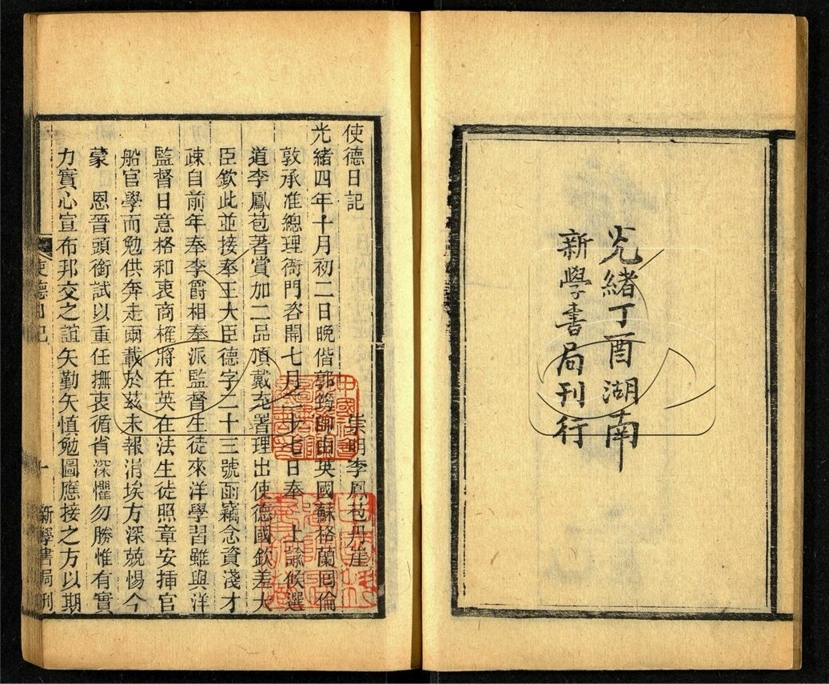 光緒丁酉湖南
新學書局刊行
使德日記
崇明李鳳苞丹崖
光緒四年十月初二日晚偕郭筠仙由英國蘇格蘭囘倫
敦承准總理衙門咨開七月二十七日奉　上諭候選
道李鳳苞著賞加二品頂戴充署理出使德國欽差大
臣欽此並接奉王大臣德字二十三號函竊念資淺才
疎自前年奉李爵相奉派監督生徒來洋學習雖與洋
監督日意格和衷商榷將在英在法生徒照章安揷官
船官學而勉供奔走兩載於茲未報涓埃方深兢惕今
蒙　恩晉頭銜試以重任撫衷循省深懼勿勝惟有實
力實心宣布邦交之誼矢勤矢慎勉圖應接之方以期
使德日記
一
新學書局刊